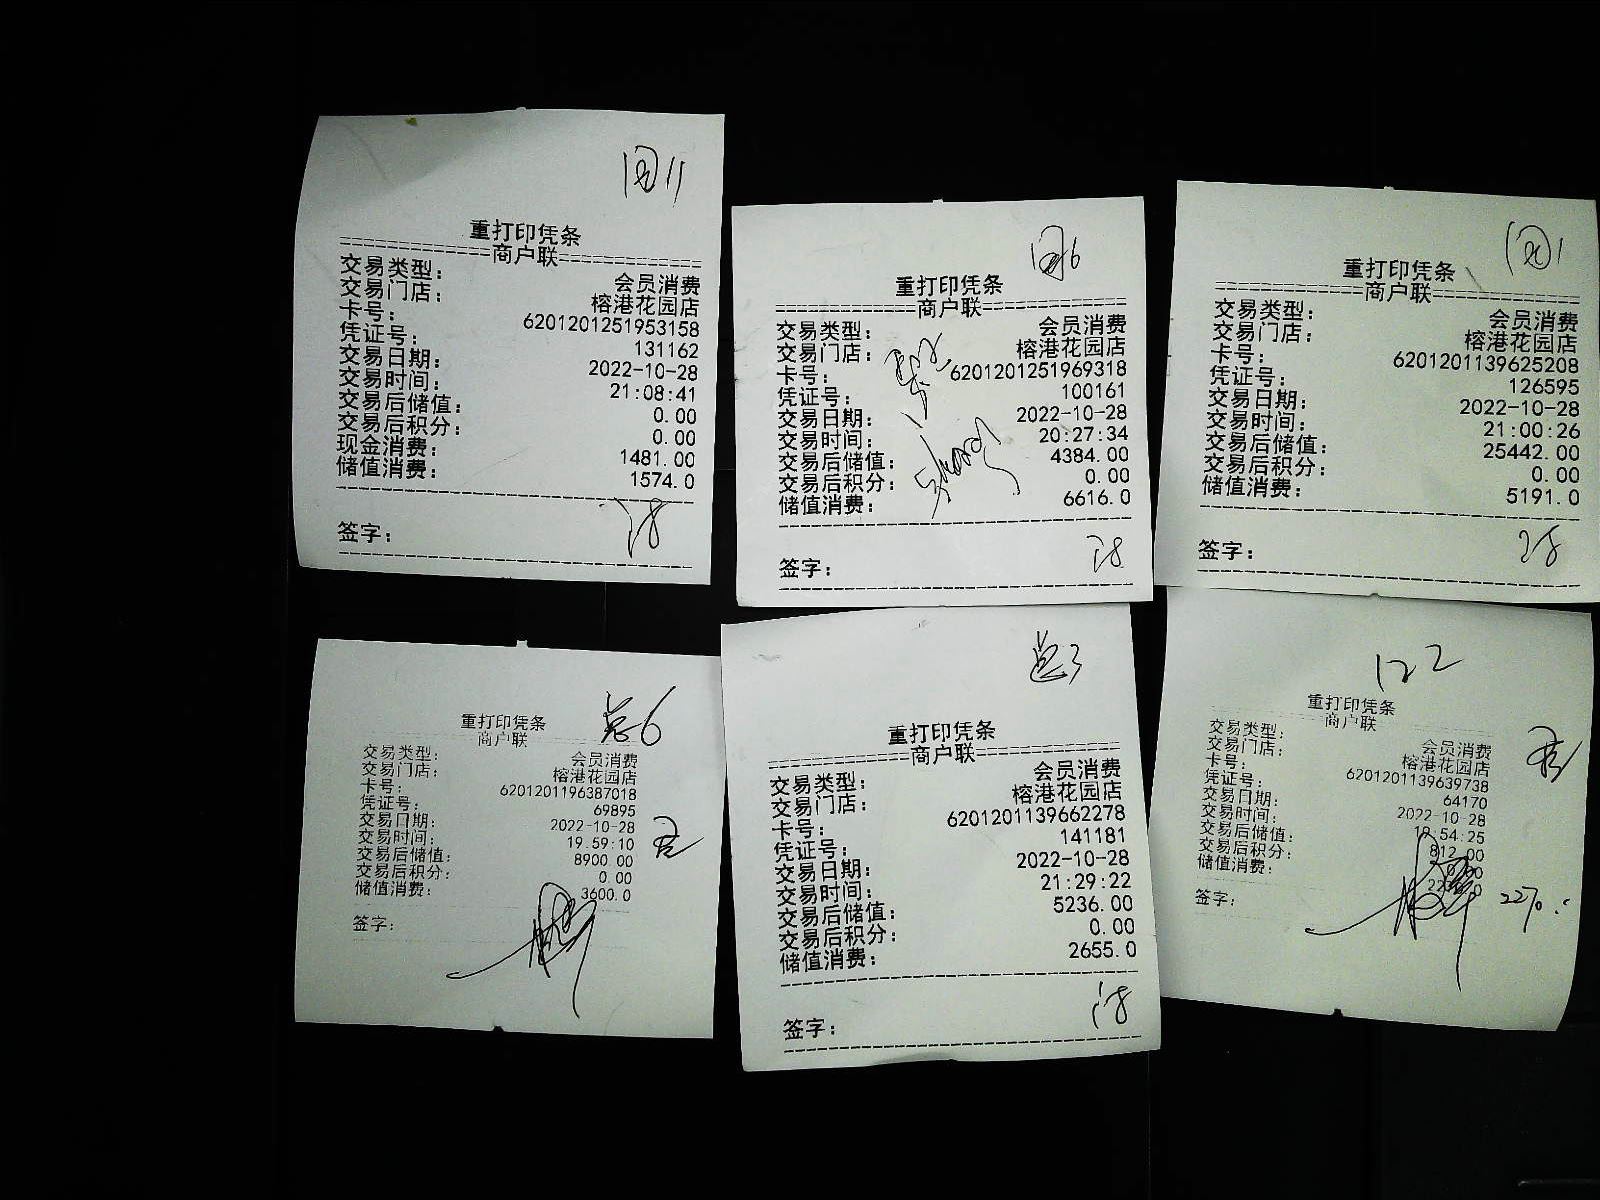 重打印凭条
商户联
交易类型： 会员消费
交易门店： 榕港花园店
卡号： 6201201251953158
凭证号： 131162
交易日期： 2022-10-28
交易时间： 21:08:41
交易后储值： 0.00
交易后积分： 0.00
现金消费： 1481.00
储值消费： 1574.0
28
签字：
重打印凭条
商户联
交易类型： 会员消费
交易门店： 榕港花园店
卡号： 6201201251969318
凭证号： 100161
交易日期： 2022-10-28
交易时间： 20:27:34
交易后储值： 4384.00
交易后积分： 0.00
储值消费： 6616.0
28
签字：
重打印凭条
商户联
交易类型： 会员消费
交易门店： 榕港花园店
卡号： 6201201139625208
凭证号： 126595
交易日期： 2022-10-28
交易时间： 21:00:26
交易后储值： 25442.00
交易后积分： 0.00
储值消费： 5191.0
28
签字：
总6
重打印凭条
商户联
交易类型： 会员消费
交易门店： 榕港花园店
卡号： 6201201196387018
凭证号： 69895
交易日期： 2022-10-28
交易时间： 19:59:10
交易后储值： 8900.00
交易后积分： 0.00
储值消费： 3600.0
签字：
总3
重打印凭条
商户联
交易类型： 会员消费
交易门店： 榕港花园店
卡号： 6201201139662278
凭证号： 141181
交易日期： 2022-10-28
交易时间： 21:29:22
交易后储值： 5236.00
交易后积分： 0.00
储值消费： 2655.0
28
签字：
122
重打印凭条
商户联
交易类型： 会员消费
交易门店： 榕港花园店
卡号： 6201201139639738
凭证号： 64170
交易日期： 2022-10-28
交易时间：
交易后储值： 812.00
交易后积分：
储值消费：
签字：